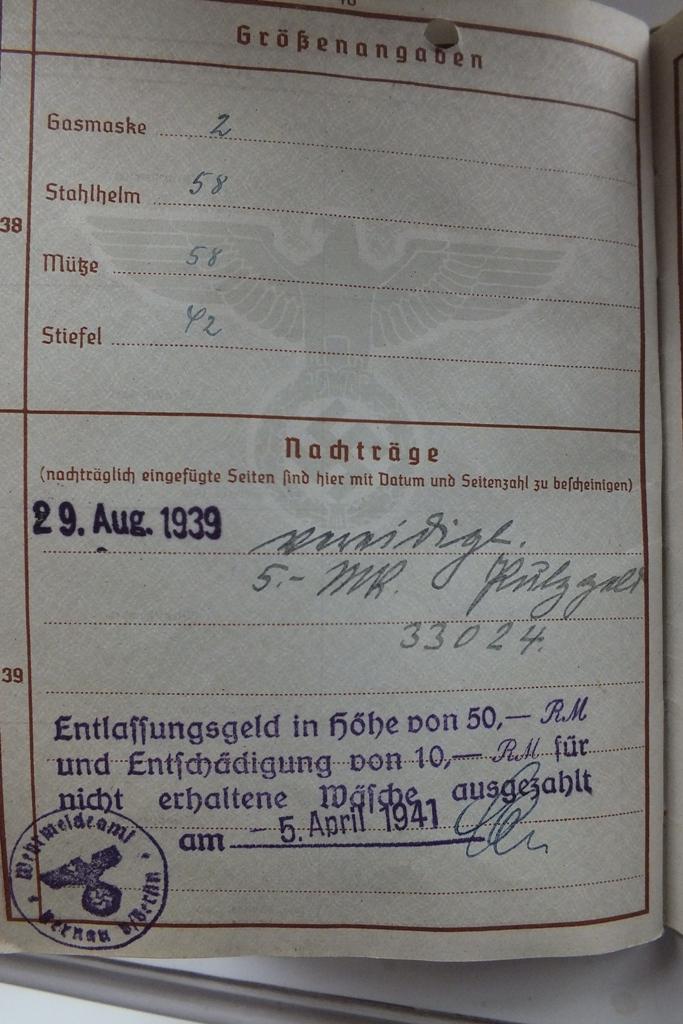 Größenangaben
Gasmaske 2
Stahlhelm 58
38
Mütze 58
Stiefel 42
Nachträge
(nachträglich eingefügte Seiten sind hier mit Datum und Seitenzahl zu bescheinigen)
29. Aug. 1939 vereidigt.
5.- MK. Putzgeld
33024.
39
Entlassungsgeld in Höhe von 50,— RM
und Entschädigung von 10,— RM für
nicht erhaltene Wäsche ausgezahlt
am - 5. April 1941
Wehrmeldeamt
Bernau b/Berlin